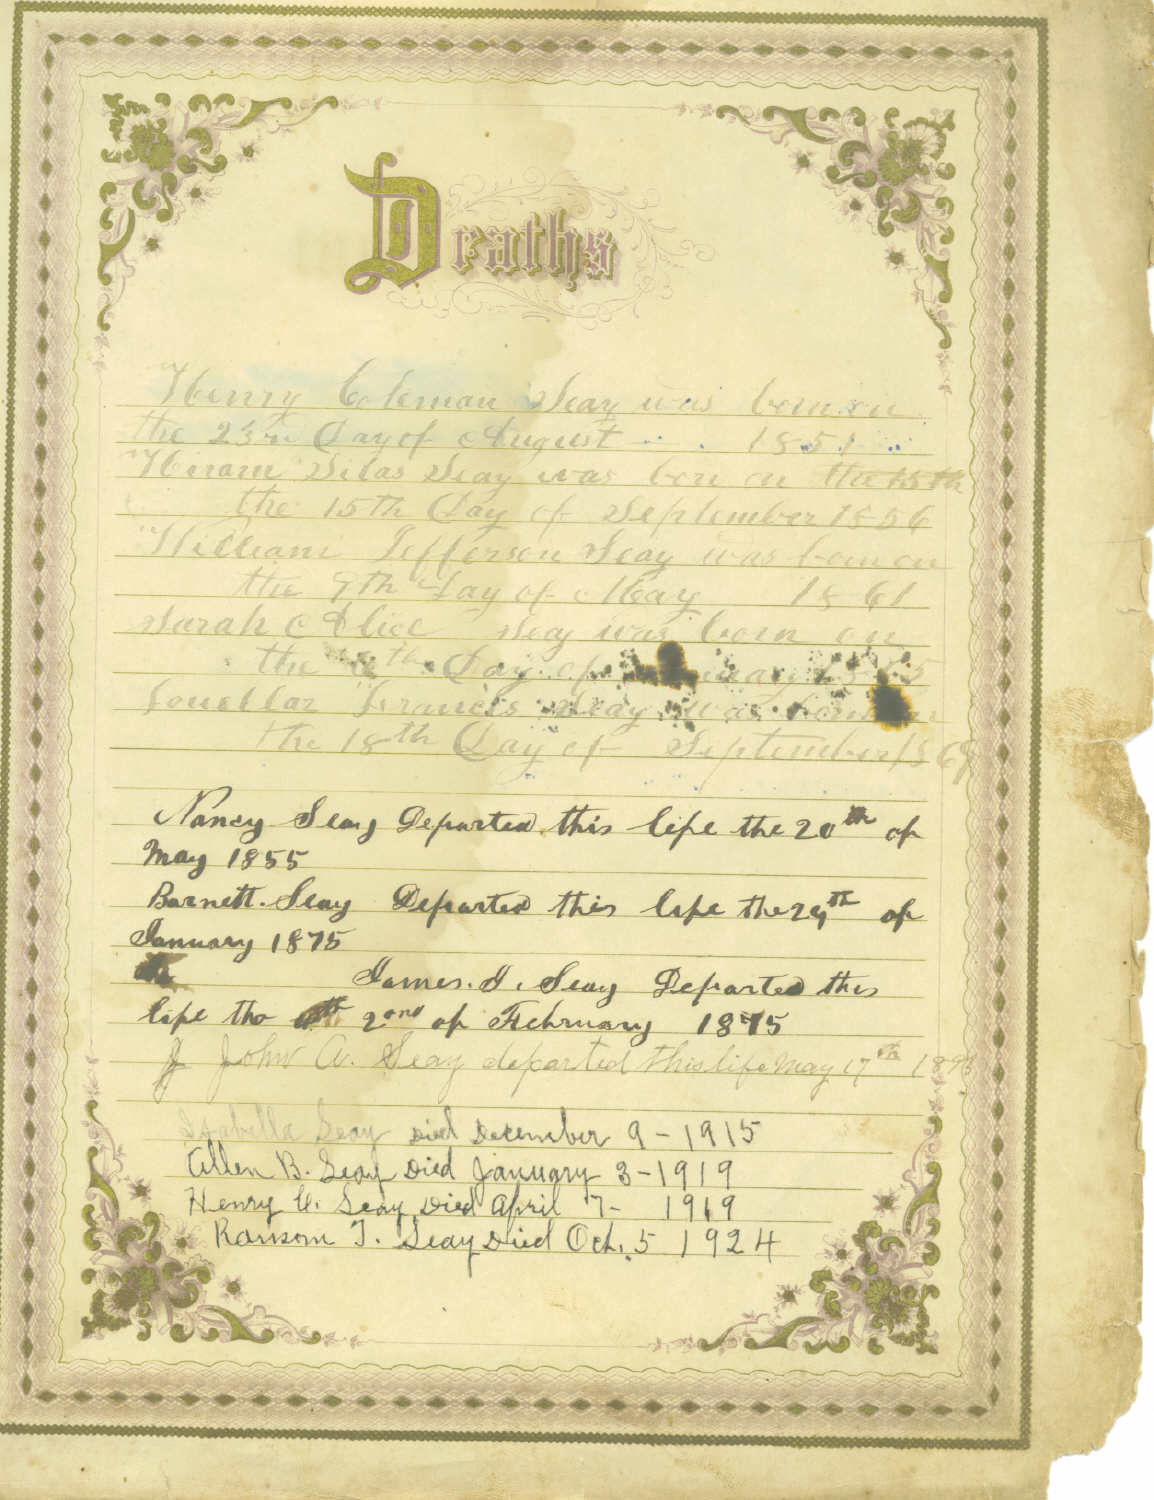 Deaths
Henry Coleman Seay was born on
the 23rd Day of August 1851
Hiram Silas Seay was born on the 15th
the 15th Day of September 1856
William Jefferson Seay was born on
the 9th Day of May 1861
Sarah Alice Seay was born on
the Day of
Louellar Francis Seay was born on
the 18th Day of September 1869
Nancy Seay Departed this life the 20th of
May 1855
Barnett. Seay Departed this life the 29th of
January 1875
James. I. Seay Departed this
life the 2ond of February 1875
John W. Seay departed this life May 17th
Isabella Seay Died December 9 - 1915
Allen B. Seay Died January 3 - 1919
Henry C. Seay Died April 7 - 1919
Ransom T. Seay Died Oct. 5 1924